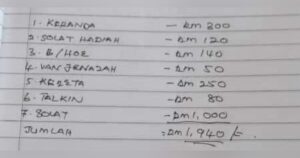 1. KERANDA - RM 300
2. SOLAT HADIAH - RM 120
3. B/HOE - RM 140
4. VAN JENAZAH - RM 50
5. KERETA - RM 250
6. TALKIN - RM 80
7. SOLAT - RM 1,000
JUMLAH = RM 1,940/=.